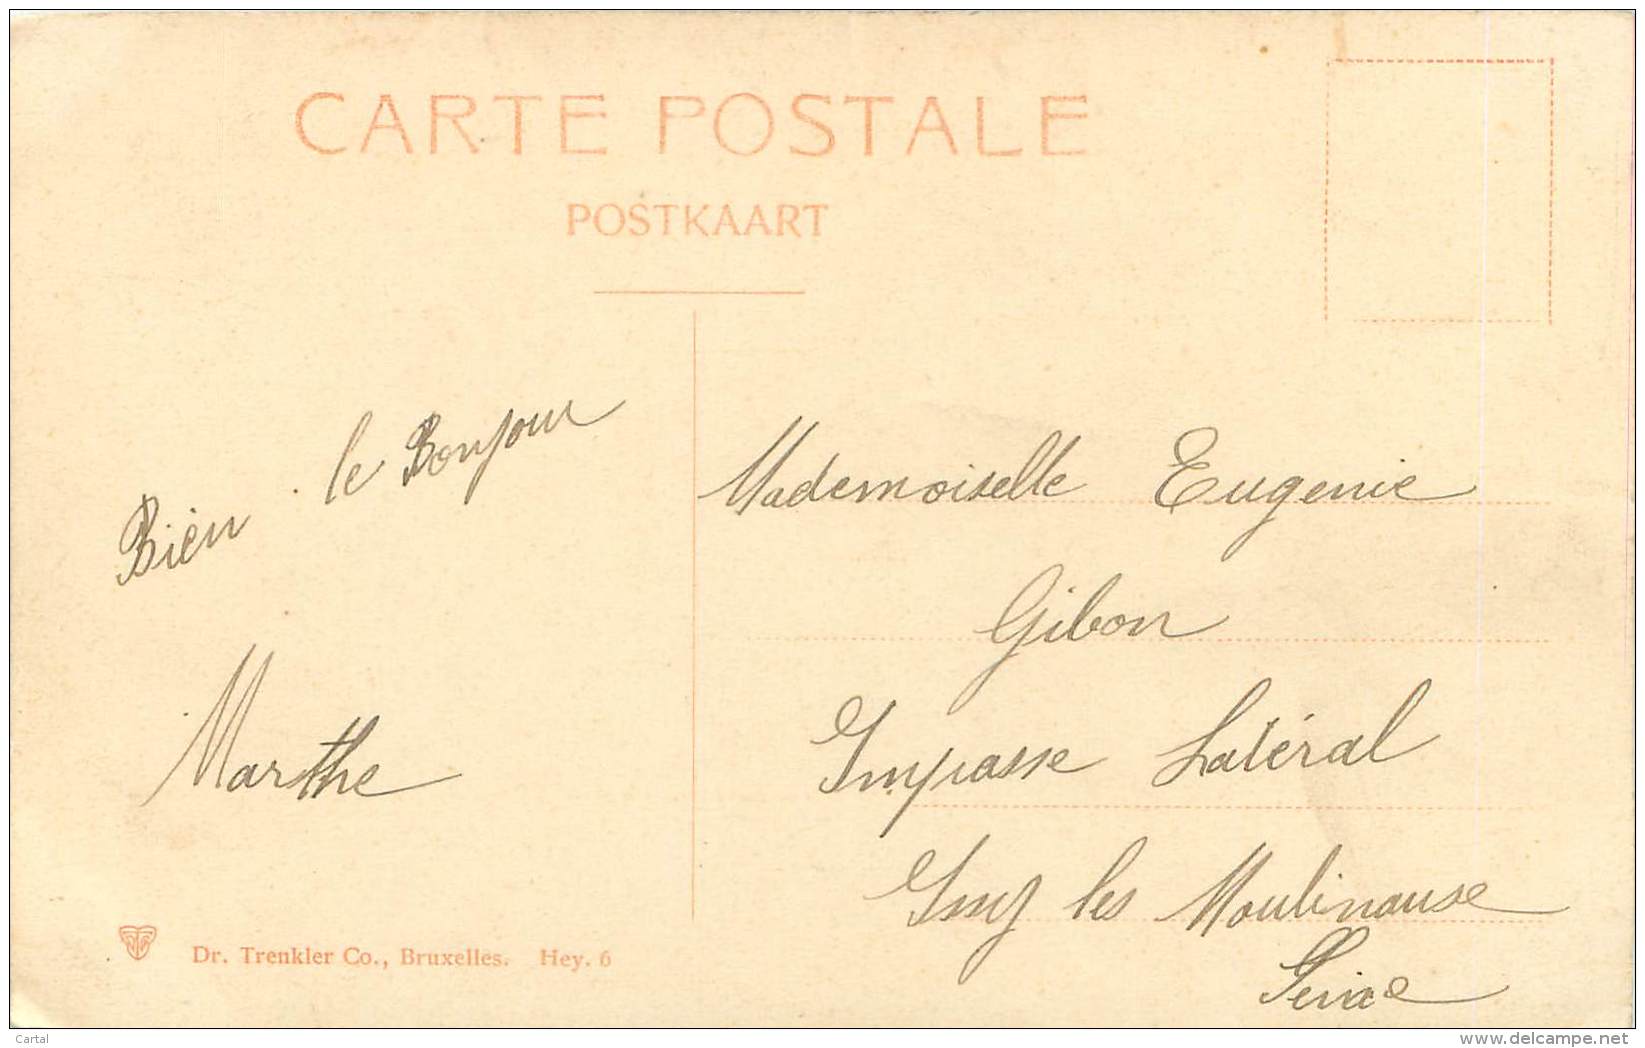 CARTE POSTALE
POSTKAART
Bien le Bonjour
Marthe
Mademoiselle Eugenie
Gibon
Impasse Latéral
les Moulinause
Seine
Dr. Trenkler Co., Bruxelles. Hey. 6
Cartal
www.delcampe.net